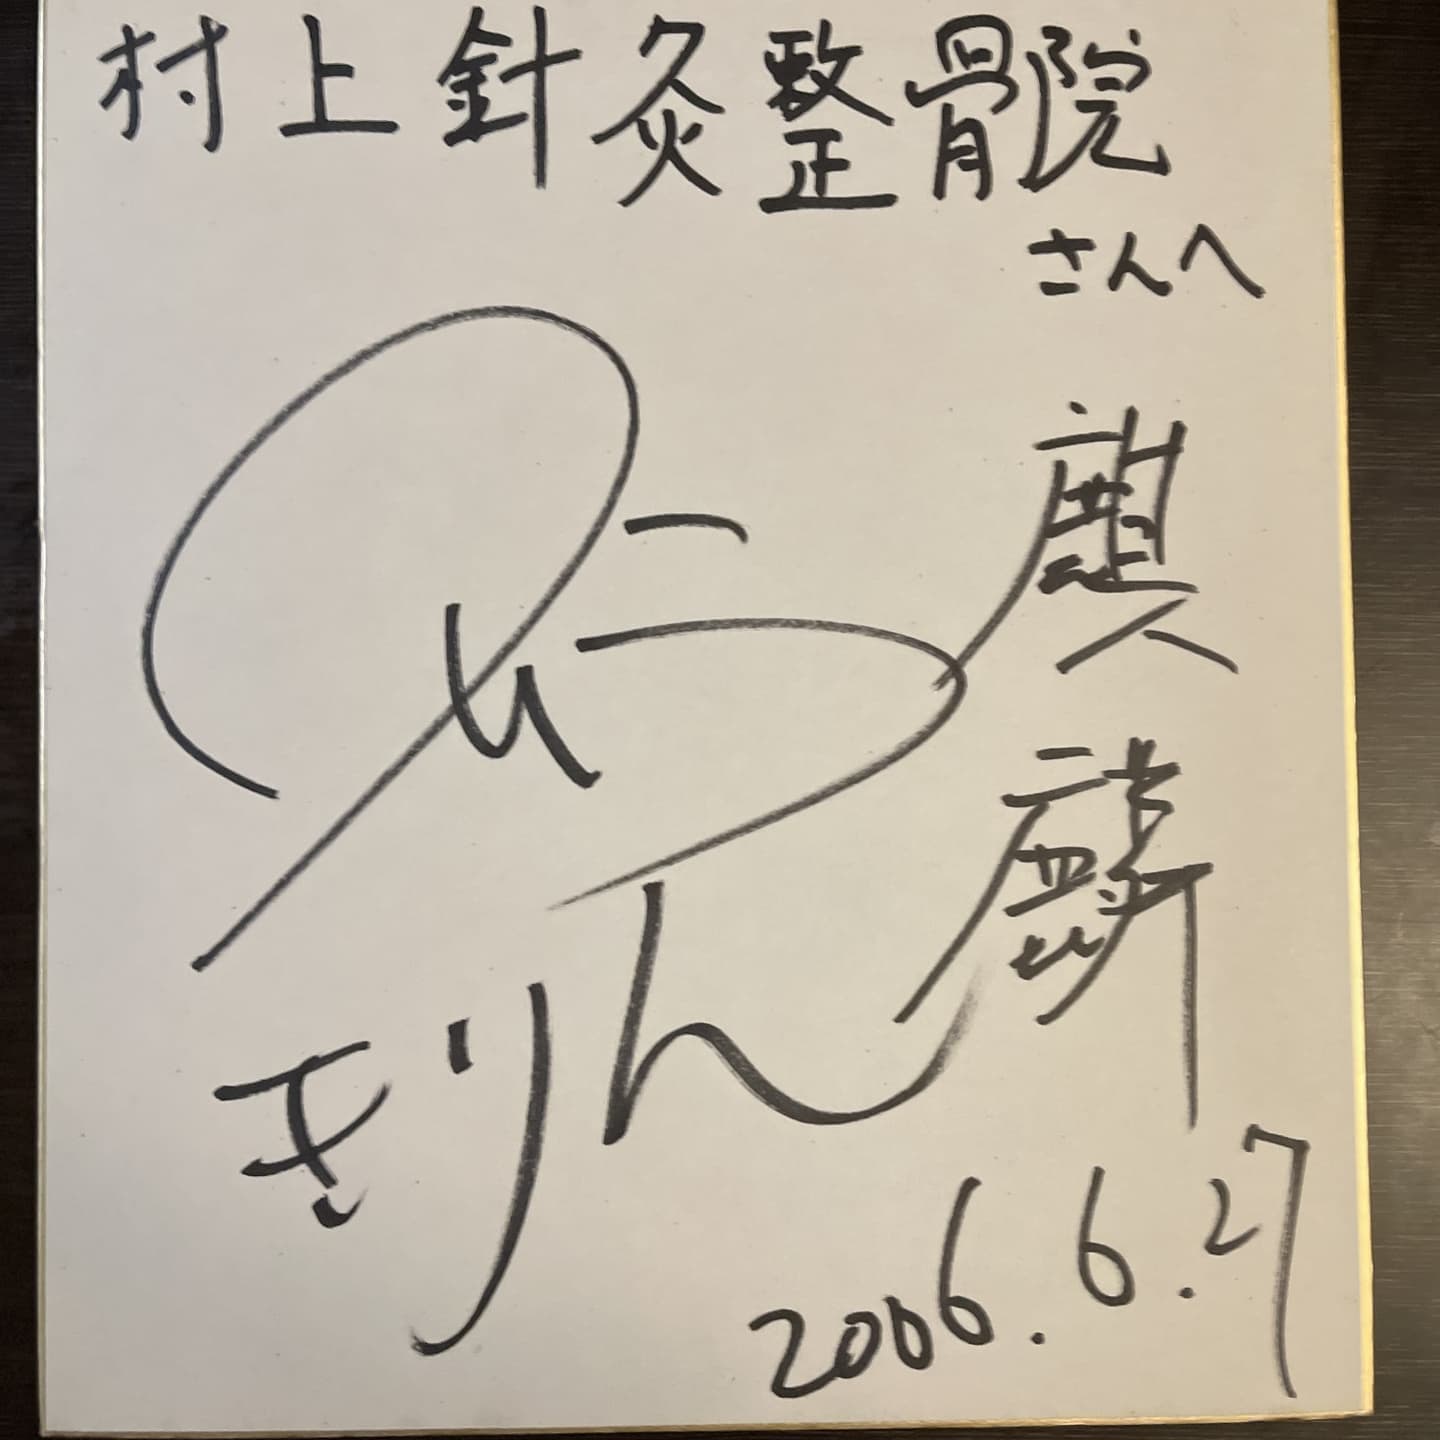 村上針灸整骨院
さんへ
麒麟
きりん
2006.6.27